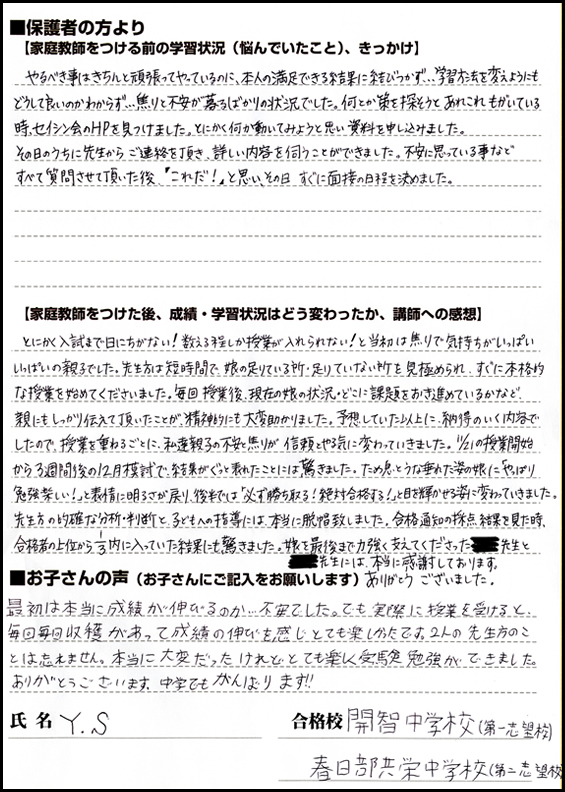 ■保護者の方より
【家庭教師をつける前の学習状況（悩んでいたこと）、きっかけ】
やるべき事はきちんと頑張ってやっているのに、本人の満足できる結果に結びつかず…学習方法を変えようにも
どうして良いのかわからず…焦りと不安が募るばかりの状況でした。何とか策を探そうとあれこれもがいている
時、セイシン会のHPを見つけました。とにかく何か動いてみようと思い資料を申し込みました。
その日のうちに先生からご連絡を頂き、詳しい内容を伺うことができました。不安に思っている事など
すべて質問させて頂いた後、「これだ！」と思い、その日すぐに面接の日程を決めました。
【家庭教師をつけた後、成績・学習状況はどう変わったか、講師への感想】
とにかく入試まで日にちがない！数える程しか授業が入れられない！と当初は焦りで気持ちがいっぱい
いっぱいの親子でした。先生方は短時間で娘の足りている所・足りていない所を見極められ、すぐに本格的
な授業を始めてくださいました。毎回授業後、現在の娘の状況・どこに課題をおき進めているかなど、
親にもしっかり伝えて頂いたことが、精神的にも大変助かりました。予想していた以上に、納得のいく内容で
したので、授業を重ねるごとに、私達親子の不安と焦りが信頼とやる気に変わっていきました。11/21の授業開始
から3週間後の12月模試で、結果がぐっと表れたことには驚きました。ため息とうな垂れた姿の娘に「やっぱり
勉強楽しい！」と表情に明るさが戻り、後半では「必ず勝ち取る！絶対合格する！」と目を輝かせる姿に変わっていきました。
先生方の的確な分析・判断と、子どもへの指導には、本当に脱帽致しました。合格通知の採点結果を見た時、
合格者の上位から1/3内に入っていた結果にも驚きました。娘を最後まで力強く支えてくださった 先生と
先生には、本当に感謝しております。
ありがとうございました。
■お子さんの声（お子さんにご記入をお願いします）
最初は本当に成績が伸びるのか…不安でした。でも実際に授業を受けると、
毎回毎回収穫があって成績の伸びを感じとても楽しかたです。2人の先生方のこ
とは忘れません。本当に大変だったけれどとても楽しく受験勉強ができました。
ありがとうございます。中学でもがんばります!!
氏名 Y.S 合格校 開智中学校(第一志望校)
春日部共栄中学校(第二志望校)